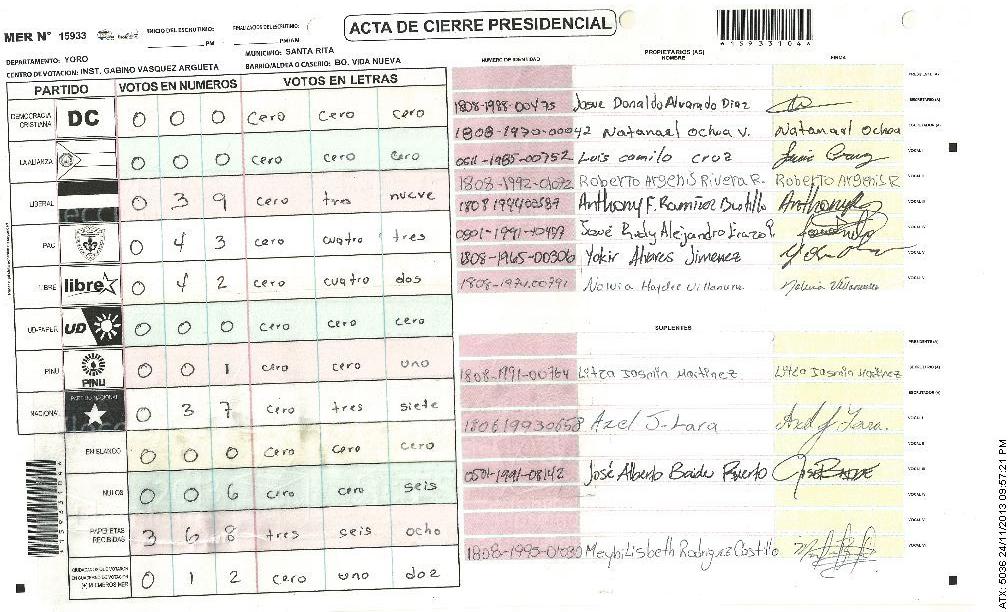 ACTA DE CIERRE PRESIDENCIAL
MER N° 15933
INICIO DEL ESCRUTINIO:
PM
PM/AM
4159331044
DEPARTAMENTO: YORO
MUNICIPIO: SANTA RITA
CENTRO DE VOTACION: INST. GABINO VASQUEZ ARGUETA
BARRIO/ALDEA O CASERIO: BO. VIDA NUEVA
PARTIDO VOTOS EN NUMEROS VOTOS EN LETRAS
DEMOCRACIA CRISTIANA DC 0 0 0 cero cero cero
LA ALIANZA 0 0 0 cero cero cero
LIBERAL 0 3 9 cero tres nueve
PAC 0 4 3 cero cuatro tres
LIBRE libre 0 4 2 cero cuatro dos
UD-FAPER UD 0 0 0 cero cero cero
PINU PINU 0 0 1 cero cero uno
NACIONAL PARTIDO NACIONAL 0 3 7 cero tres siete
EN BLANCO 0 0 0 cero cero cero
NULOS 0 0 6 cero cero seis
PAPELETAS RECIBIDAS 3 6 8 tres seis ocho
CIUDADANOS QUE VOTARON EN CUADERNO DE VOTACION (+) MIEMBROS MER 0 1 2 cero uno doz
NUMERO DE IDENTIDAD
PROPIETARIOS (AS)
NOMBRE
FIRMA
PRESIDENTE (A)
1808-1988-00475 Josue Donaldo Alvarado Diaz SECRETARIO (A)
1808-1970-00042 Natanael Ochoa v. Natanael Ochoa ESCRUTADOR (A)
0511-1985-00752 Luis camilo cruz VOCAL I
1808-1992-01072 Roberto Argenis Rivera R. Roberto Argenis R
Anthony F. Ramirez Bustillo Anthony
José Rudy Alejandro Erazo
1808-1965-00306 Yokir Alvares Jimenez
1808-1974-00791
SUPLENTES
PRESIDENTE (A)
1808-1991-00764 Litza Jasmin Martinez Litza Jasmin Martinez SECRETARIO (A)
ESCRUTADOR (A)
1806199300658 Axel J. Lara Axel J. Lara. VOCAL I
VOCAL II
0501-1991-08142 José Alberto Baide VOCAL III
VOCAL IV
VOCAL V
Meybi Lisbeth Rodriguez Castillo VOCAL VI
4159331044
ATX: 5036 24/11/2013 09:57:21 PM